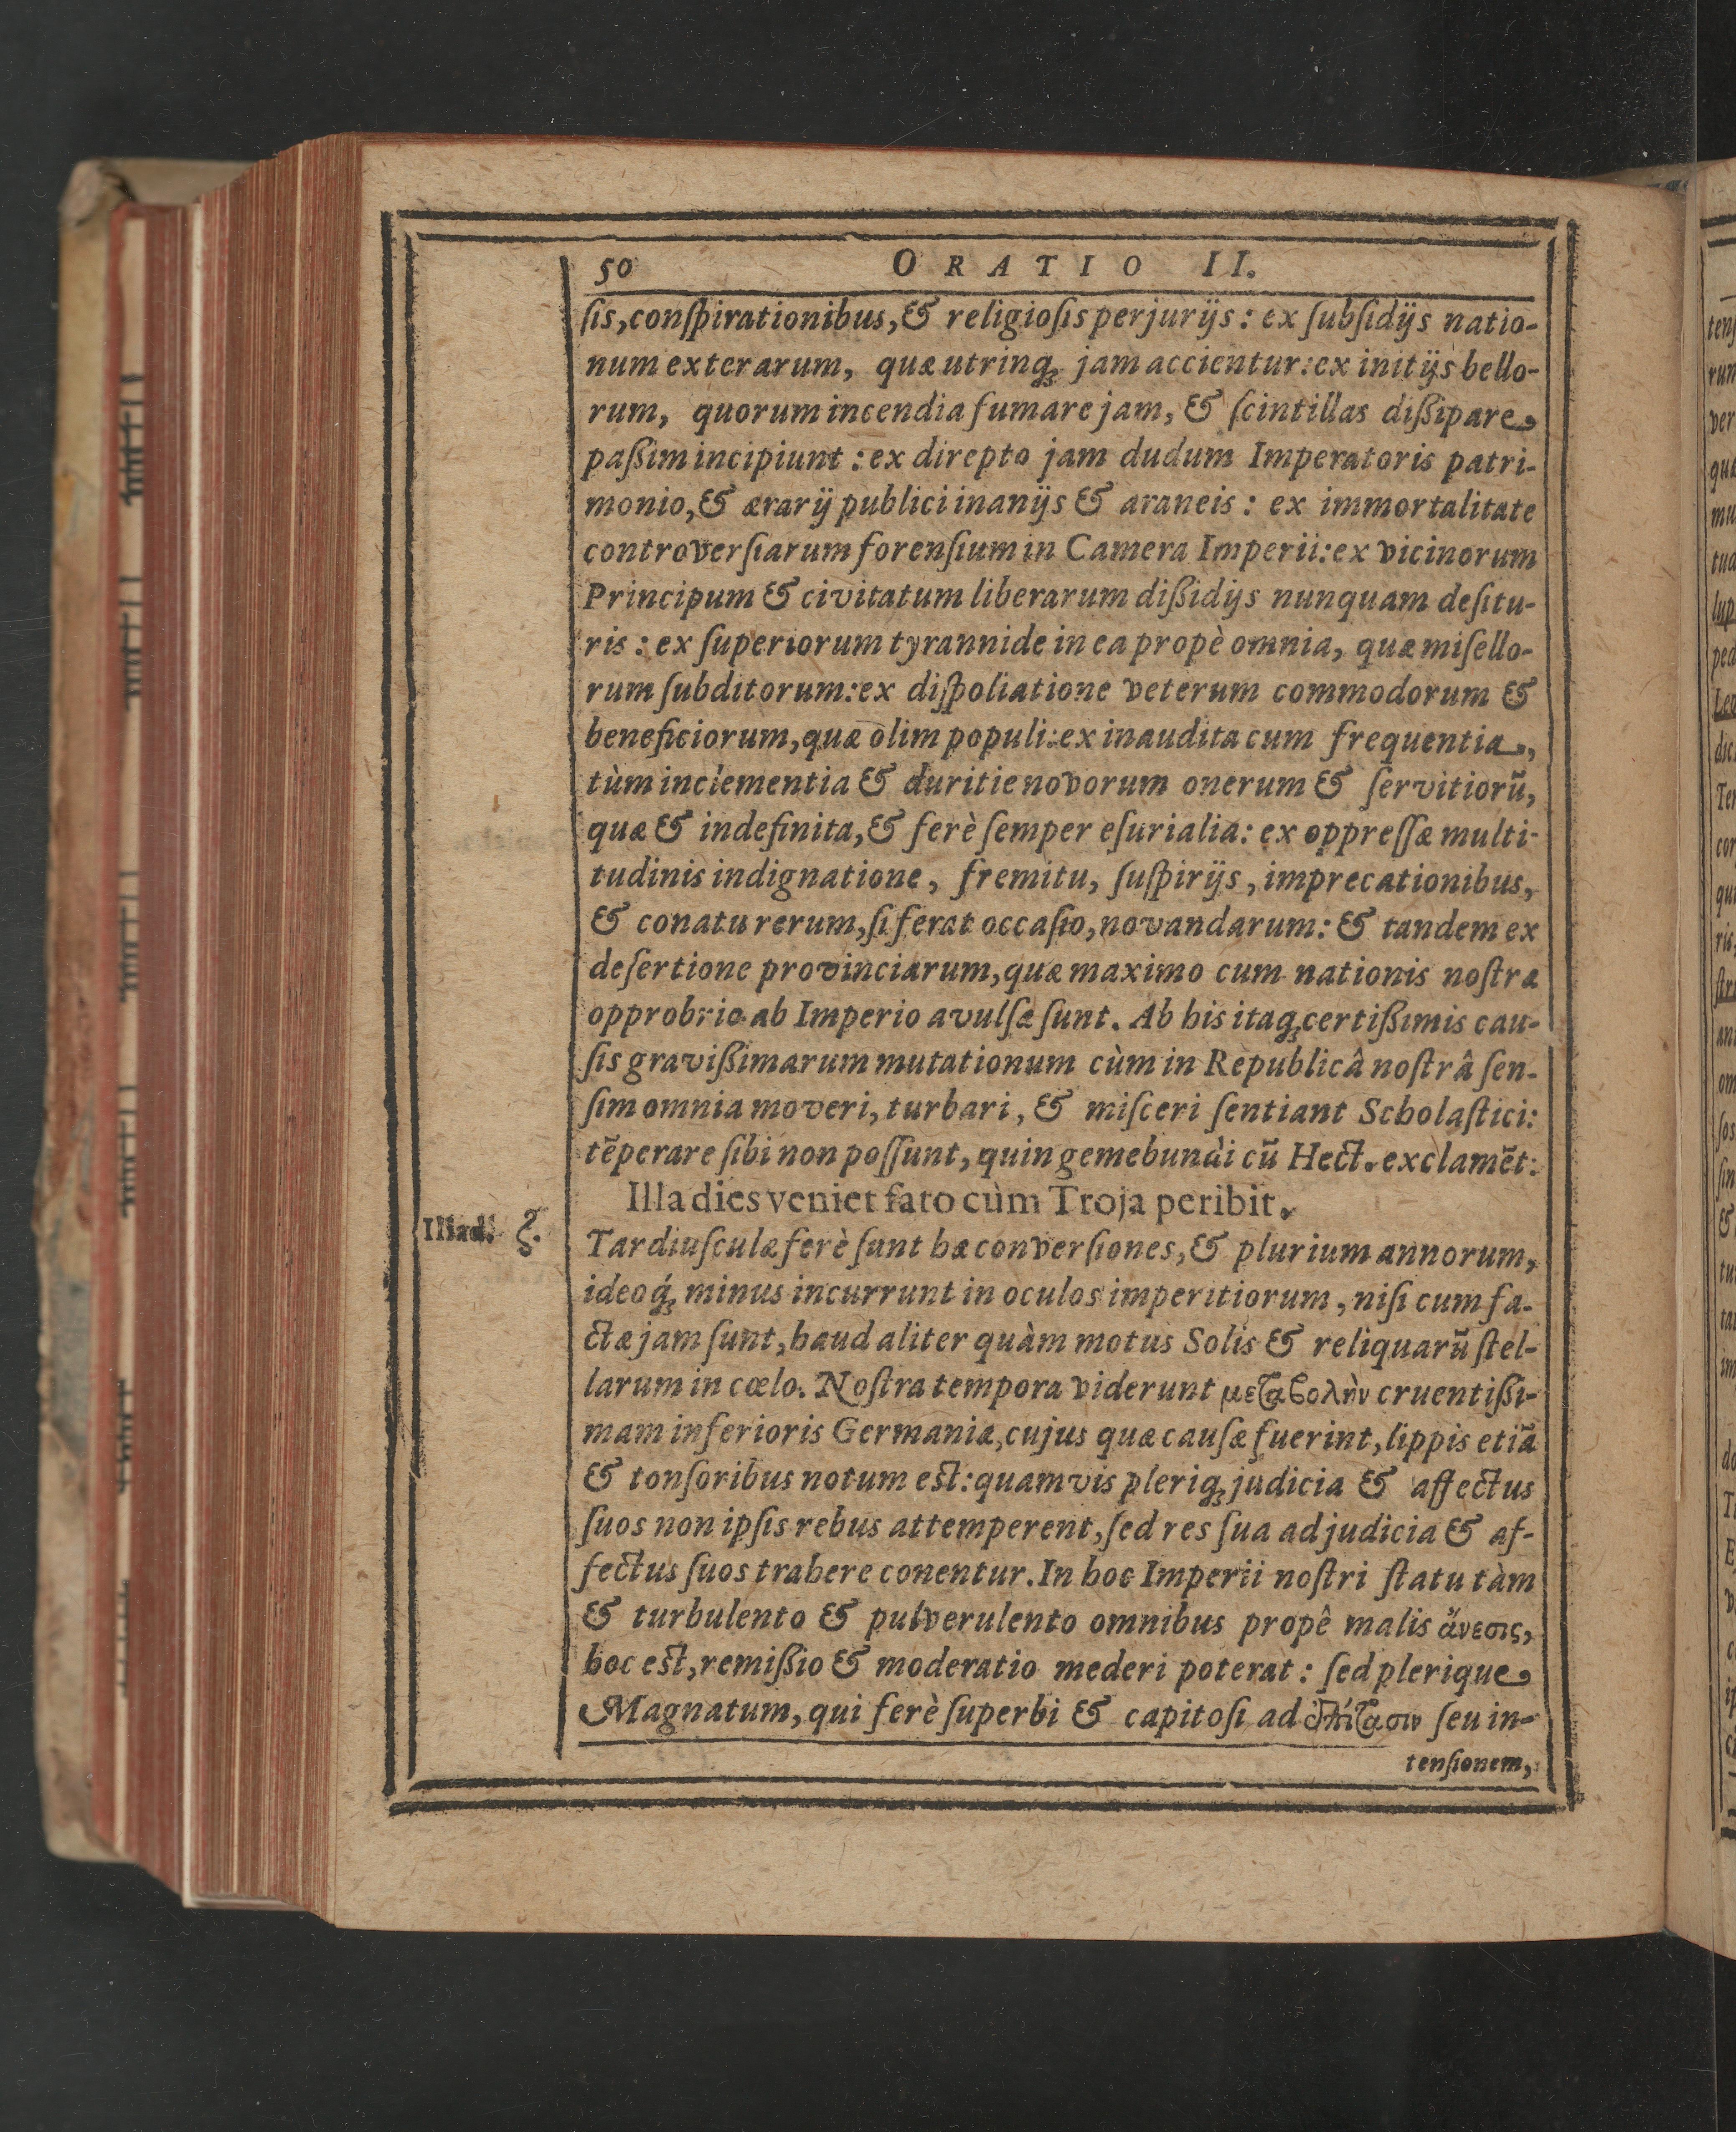 50 ORATIO II.
ſis, conſpirationibus, & religioſis perjurijs: ex ſubſidijs natio-
num exterarum, quæ utrinq́ꝫ jam accientur: ex initijs bello-
rum, quorum incendia fumare jam, & ſcintillas diſſipare
paſſim incipiunt: ex direpto jam dudum Imperatoris patri-
monio, & ærarij publici inanijs & araneis: ex immortalitate
controverſiarum forenſium in Camera Imperii: ex vicinorum
Principum & civitatum liberarum diſſidijs nunquam deſitu-
ris: ex ſuperiorum tyrannide in ea propè omnia, quæ miſello-
rum ſubditorum: ex diſpoliatione veterum commodorum &
beneficiorum, quæ olim populi: ex inaudita cum frequentia,
tùm inclementia & duritie novorum onerum & ſervitiorũ,
quæ & indefinita, & ferè ſemper eſurialia: ex oppreſſæ multi-
tudinis indignatione, fremitu, ſuſpirijs, imprecationibus,
& conatu rerum, ſi ferat occaſio, novandarum: & tandem ex
deſertione provinciarum, quæ maximo cum nationis noſtræ
opprobrio ab Imperio avulſæ ſunt. Ab his itaqꝫ certiſſimis cau-
ſis graviſſimarum mutationum cùm in Republicâ noſtrâ ſen-
ſim omnia moveri, turbari, & miſceri ſentiant Scholaſtici:
tẽperare ſibi non poſſunt, quin gemebundi cũ Hect. exclamẽt:
Illa dies veniet fato cùm Troja peribit.
Iliad. ζ.
Tardiuſculæ ferè ſunt hæ converſiones, & plurium annorum,
ideoq́ꝫ minus incurrunt in oculos imperitiorum, niſi cum fa-
ctæ jam ſunt, haud aliter quàm motus Solis & reliquarũ ſtel-
larum in cœlo. Noſtra tempora viderunt μεταβολὴν cruentiſſi-
mam inferioris Germaniæ, cujus quæ cauſæ fuerint, lippis etiã
& tonſoribus notum est: quamvis pleriqꝫ judicia & affectus
ſuos non ipſis rebus attemperent, ſed res ſua ad judicia & af-
fectus ſuos trahere conentur. In hoc Imperii noſtri ſtatu tàm
& turbulento & pulverulento omnibus propê malis ἄνεσις,
hoc est, remiſſio & moderatio mederi poterat: ſed plerique
Magnatum, qui ferè ſuperbi & capitoſi ad ἐπίτασιν ſeu in-
tenſionem,